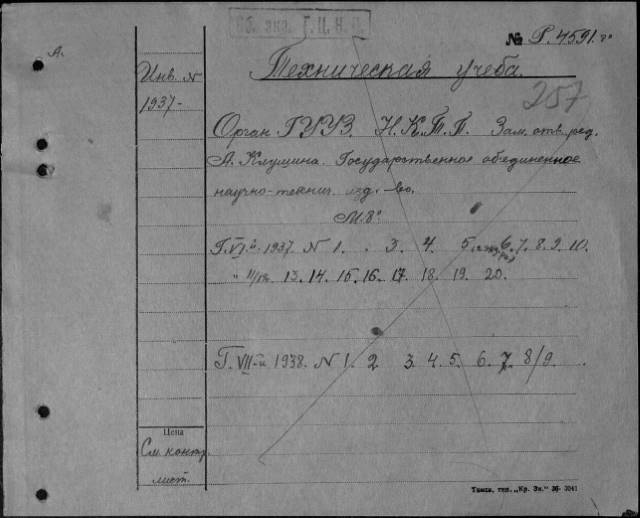 Об. экз. Г.Ц.К.П.
№ Р.4591.8°
А.
Инв. №
1937-
Техническая учеба.
257
Орган ГУУЗ. Н.К.Т.П. Зам. отв. ред.
А. Клушина. Государственное объединенное
научно-технич. изд-во.
М. 8°
Г. VI-й 1937. N 1. . 3. 4. 5. 6. 7. 8. 9. 10.
" 13. 14. 15. 16. 17. 18. 19. 20.
Г. VII-й 1938. N 1. 2 3. 4. 5. 6. 7. 8/9.
Цена
См. контр.
лист.
Тамб. тип. „Кр. Зн." 36- 3041